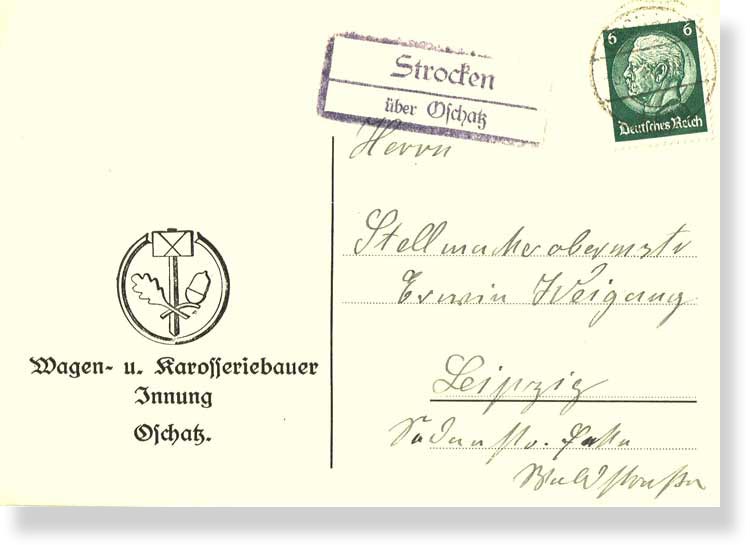 Strocken
über Oschatz
6 6
Deutsches Reich
Herrn
Stellmacherobermstr
Erwin Weigang
Leipzig
Wagen- u. Karosseriebauer
Innung
Oschatz.
Waldstraße